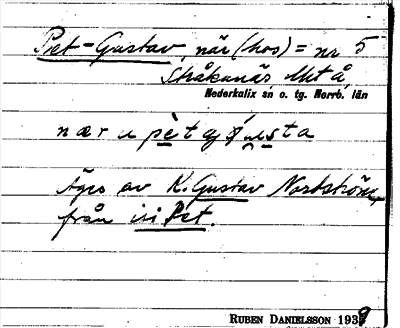 Pet-Gustav, när (hos) = nr 5
Stråkanäs, Mtå,
Nederkalix sn o. tg. Norrb. län
nær u pèt
Äges av K. Gustav Nordström,
från isi Pet.
RUBEN DANIELSSON 1939